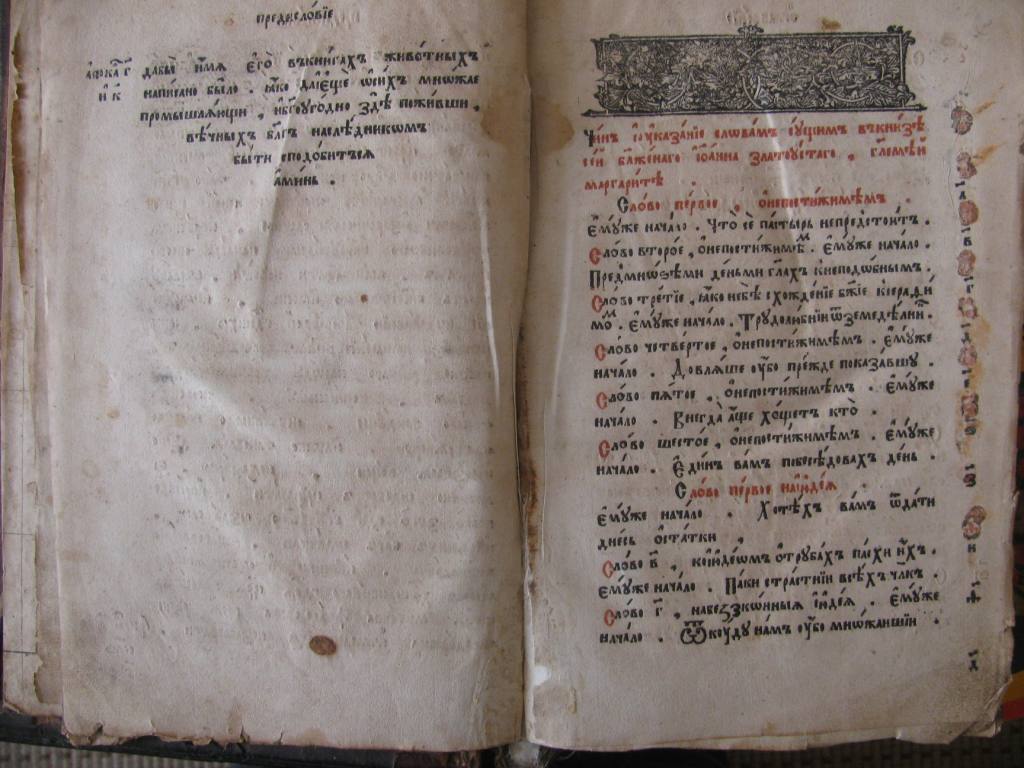 предисло́вїе
дабы̀ и҆́мя є҆го̀ въкни́гахъ живо́тныхъ
напи́сано бы́ло . ꙗ҆́ко да и҆ є҆щѐ ѡ҆ си́хъ мно́жае
промышля́ющи , и҆ бг҃оуго́дно здѣ̀ пожи́вши ,
вѣ́чныхъ бл҃гъ наслѣ́дникомъ
бы́ти сподо́битъся
а҆ми́нь .
Чи́нъ и҆ оу҆каза́нїе словами́ъ су́щимъ въкни́зѣ
се́й бл҃же́наго і҆ѡа́нна златоу́стаго , гл҃емѣ́й
маргари́тѣ .
Сло́во пе́рвое , ѡ҆непостижи́мѣмъ .
Є҆му́же нача́ло . Что̀ сѐ па́стырь непредстои́тъ .
Сло́во второ́е , ѡ҆непостижи́мѣм . Є҆му́же нача́ло .
Предмно́зѣми де́ньми гл҃ахъ кнеподо́бнымъ .
Сло́во тре́тїе , ꙗ҆́ко не бѣ̀ схожде́нїе бж҃їе
. Є҆му́же нача́ло . Трудолю́бнїи ѿ земедѣ́лни
Сло́во четве́ртое , ѡ҆непостижи́мѣмъ . Є҆му́же
нача́ло . Довля́ше оу҆́бо пре́жде показа́вшу .
Сло́во пя́тое , ѡ҆непостижи́мѣмъ . Є҆му́же
нача́ло . Внегда̀ а҆́ще хо́щетъ кто̀ .
Сло́во шесто́е , ѡ҆непостижи́мѣмъ . Є҆му́же
нача́ло . Є҆ди́нъ ва́мъ побесѣ́довахъ де́нь .
Сло́во пе́рвое на і҆ꙋде́я
Є҆му́же нача́ло . Хотѣ́хъ ва́мъ ѿда́ти
дне́сь ѡ҆ста́тки .
Сло́во в҃ , ко і҆ꙋде́ѡмъ ѡ҆ труба́хъ па́схи и҆́хъ .
Є҆му́же нача́ло . Па́ки стра́стнїи всѣ́хъ чл҃къ .
Сло́во г҃ , на беззако́нныя і҆ꙋде́я . Є҆му́же
нача́ло . Ѿкꙋ́дꙋ на́мъ оу҆́бо мно́жаншїи .